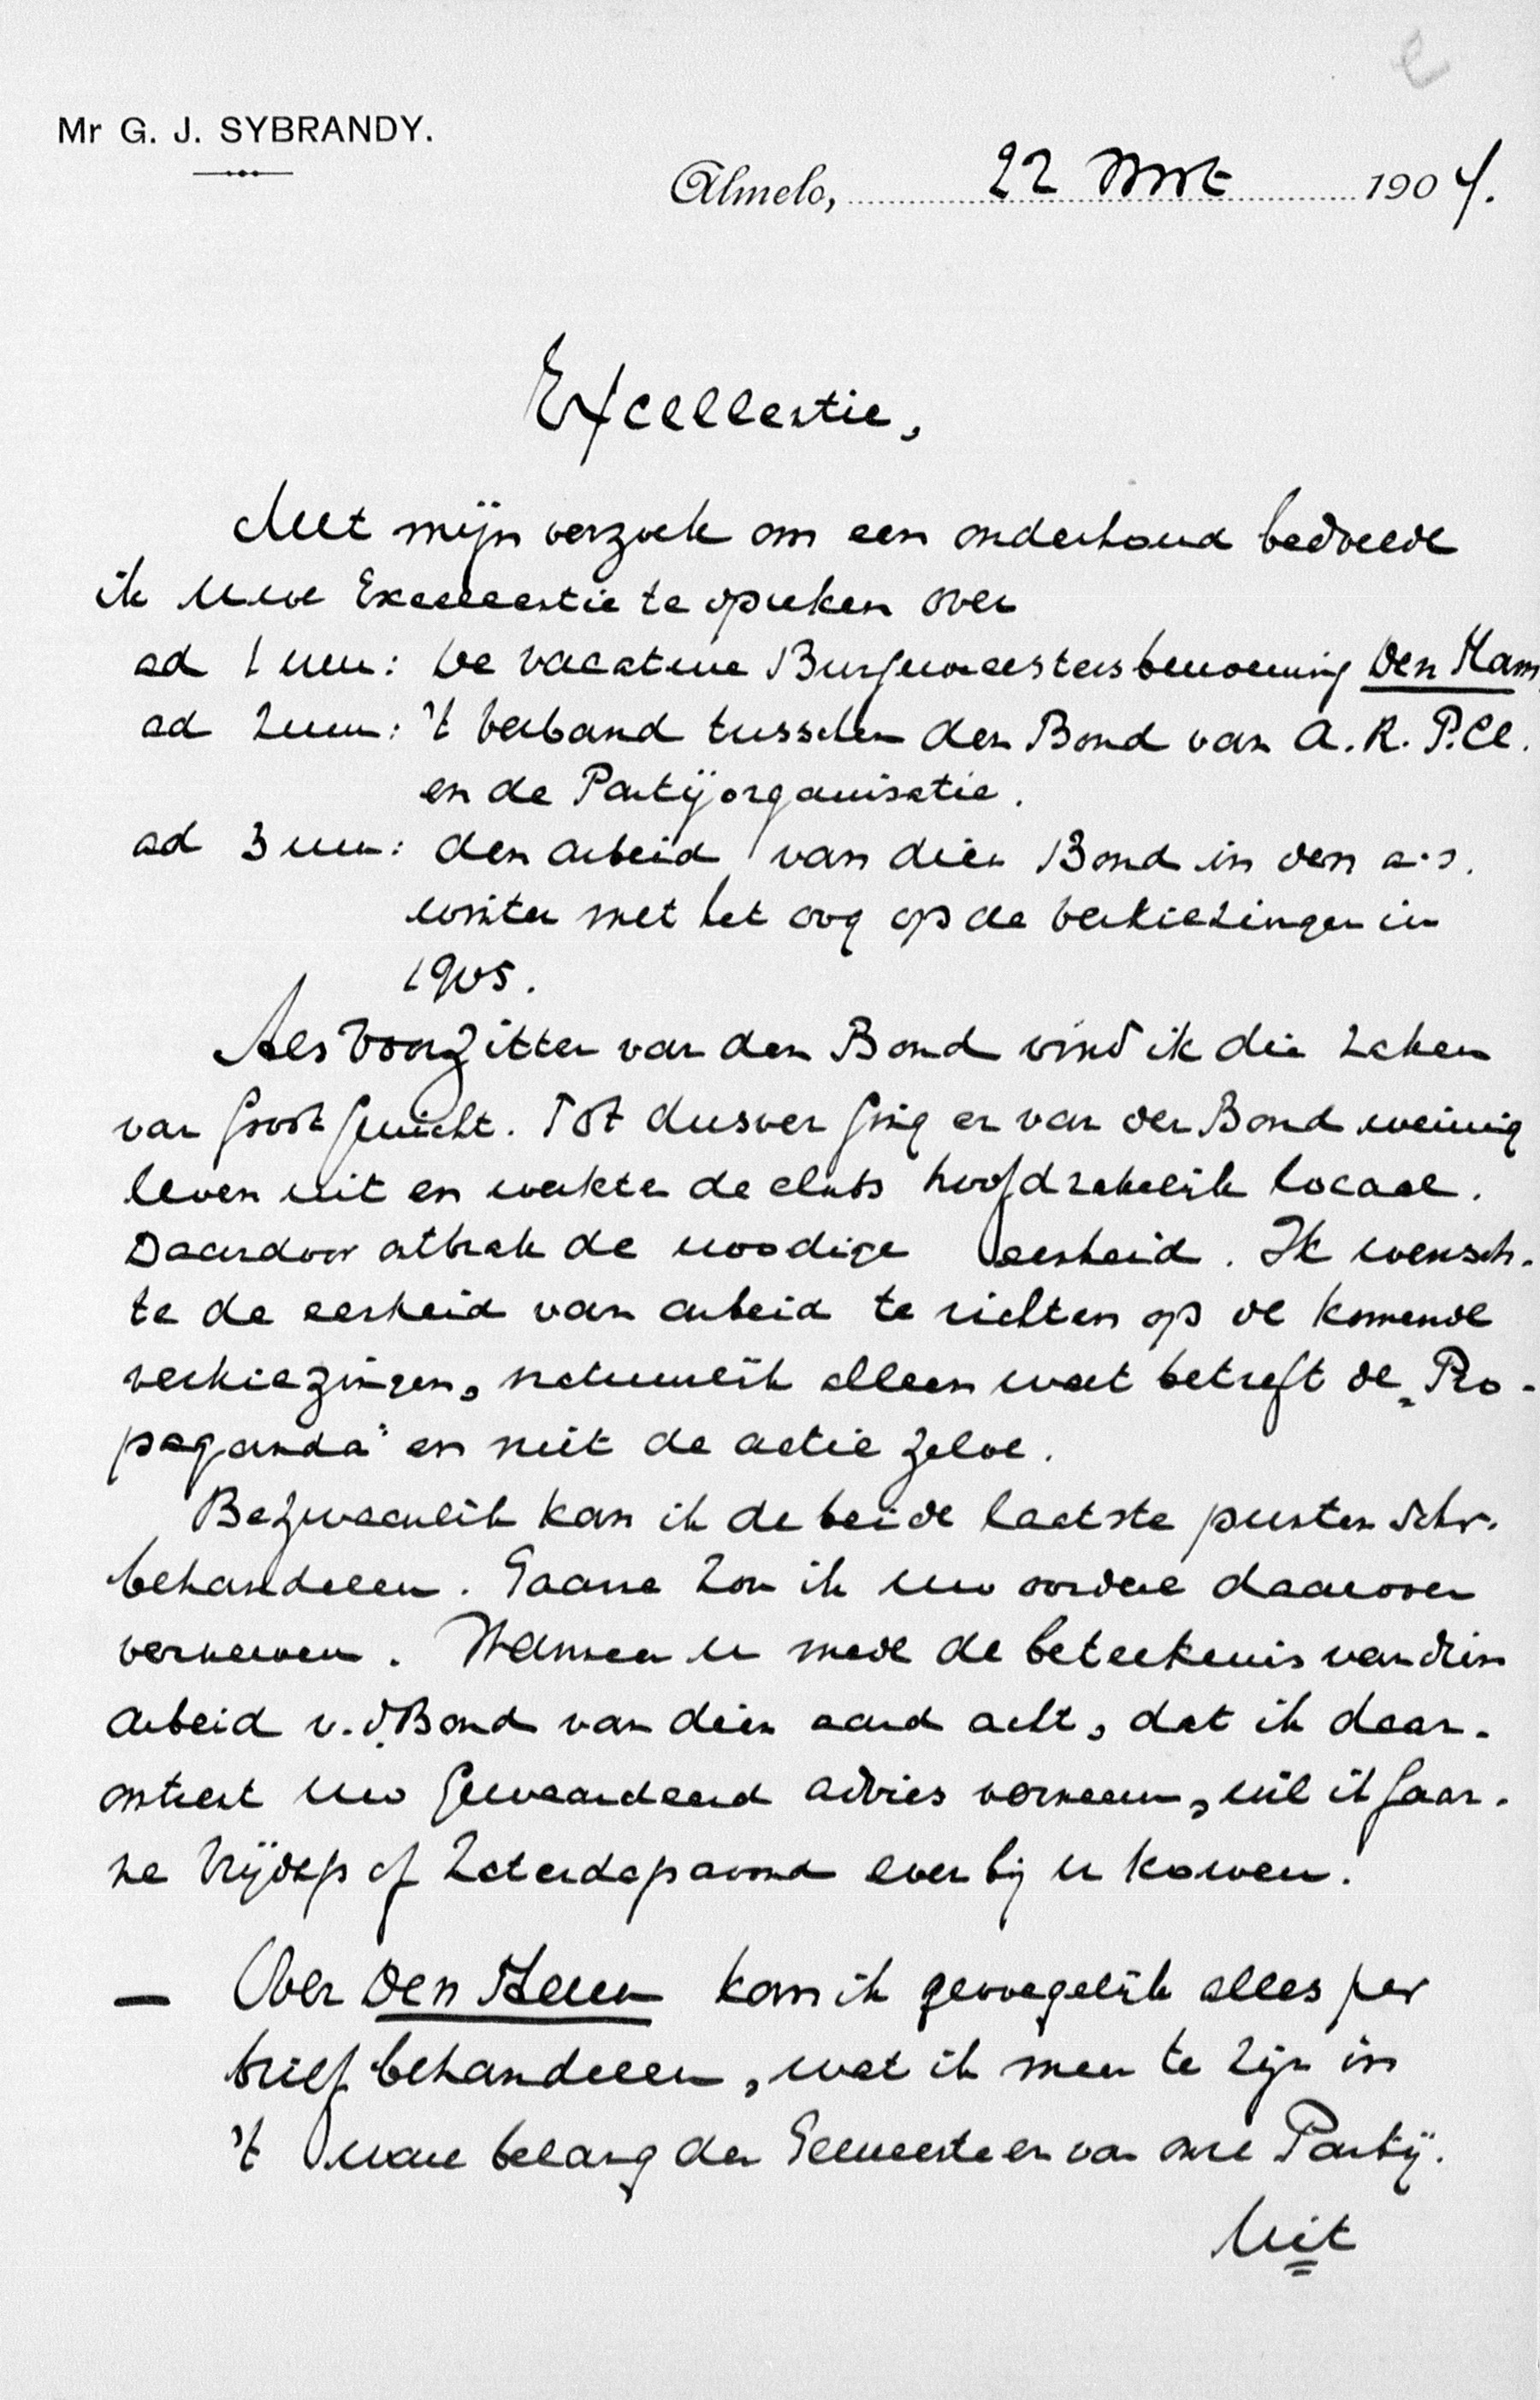 Mr G. J. SYBRANDY.
Almelo, 22 Mrt 1904.
Excellentie,
Met mijn verzoek om een onderhoud bedoelde
ik Uwe Excellentie te spreken over
ad 1um: de vacature Burgemeestersbenoeming Den Ham
ad 2um: 't verband tusschen den Bond van A. R. P. Cl.
en de Partijorganisatie.
ad 3um: den arbeid van dien Bond in den a.s.
winter met het oog op de verkiezingen in
1905.
Als Voorzitter van den Bond vind ik die zaken
van groot gewicht. Tot dusver ging er van den Bond weinig
leven uit en werkten de clubs hoofdzakelijk locaal.
Daardoor ontbrak de noodige eenheid. Ik wensch-
te de eenheid van arbeid te richten op de komende
verkiezingen, natuurlijk alleen wat betreft de „Pro-
paganda" en niet de actie zelve.
Bezwaarlijk kan ik de beide laatste punten schr.
behandelen. Gaarne zou ik uw oordeel daarover
vernemen. Wanneer u mede de beteekenis van dien
arbeid v. d. Bond van dien aard acht, dat ik daar-
omtrent uw gewaardeerd advies verneem, wil ik gaar-
ne Vrijdags of Zaterdagsavond even bij u komen.
— Over Den Ham kan ik gevoegelijk alles per
brief behandelen, wat ik meen te zijn in
't ware belang der Gemeente en van onze Partij.
Uit